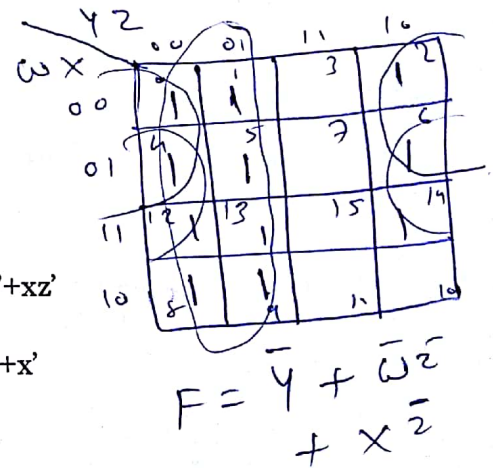 YZ
WX
00 01 11 10
00 0 1 1 1 3 1 2
01 4 1 5 1 7 1 6
11 12 1 13 1 15 1 14
10 8 1 9 1 11 10
'+xz'
+x'
F = Y̅ + W̅ Z̅
+ X Z̅